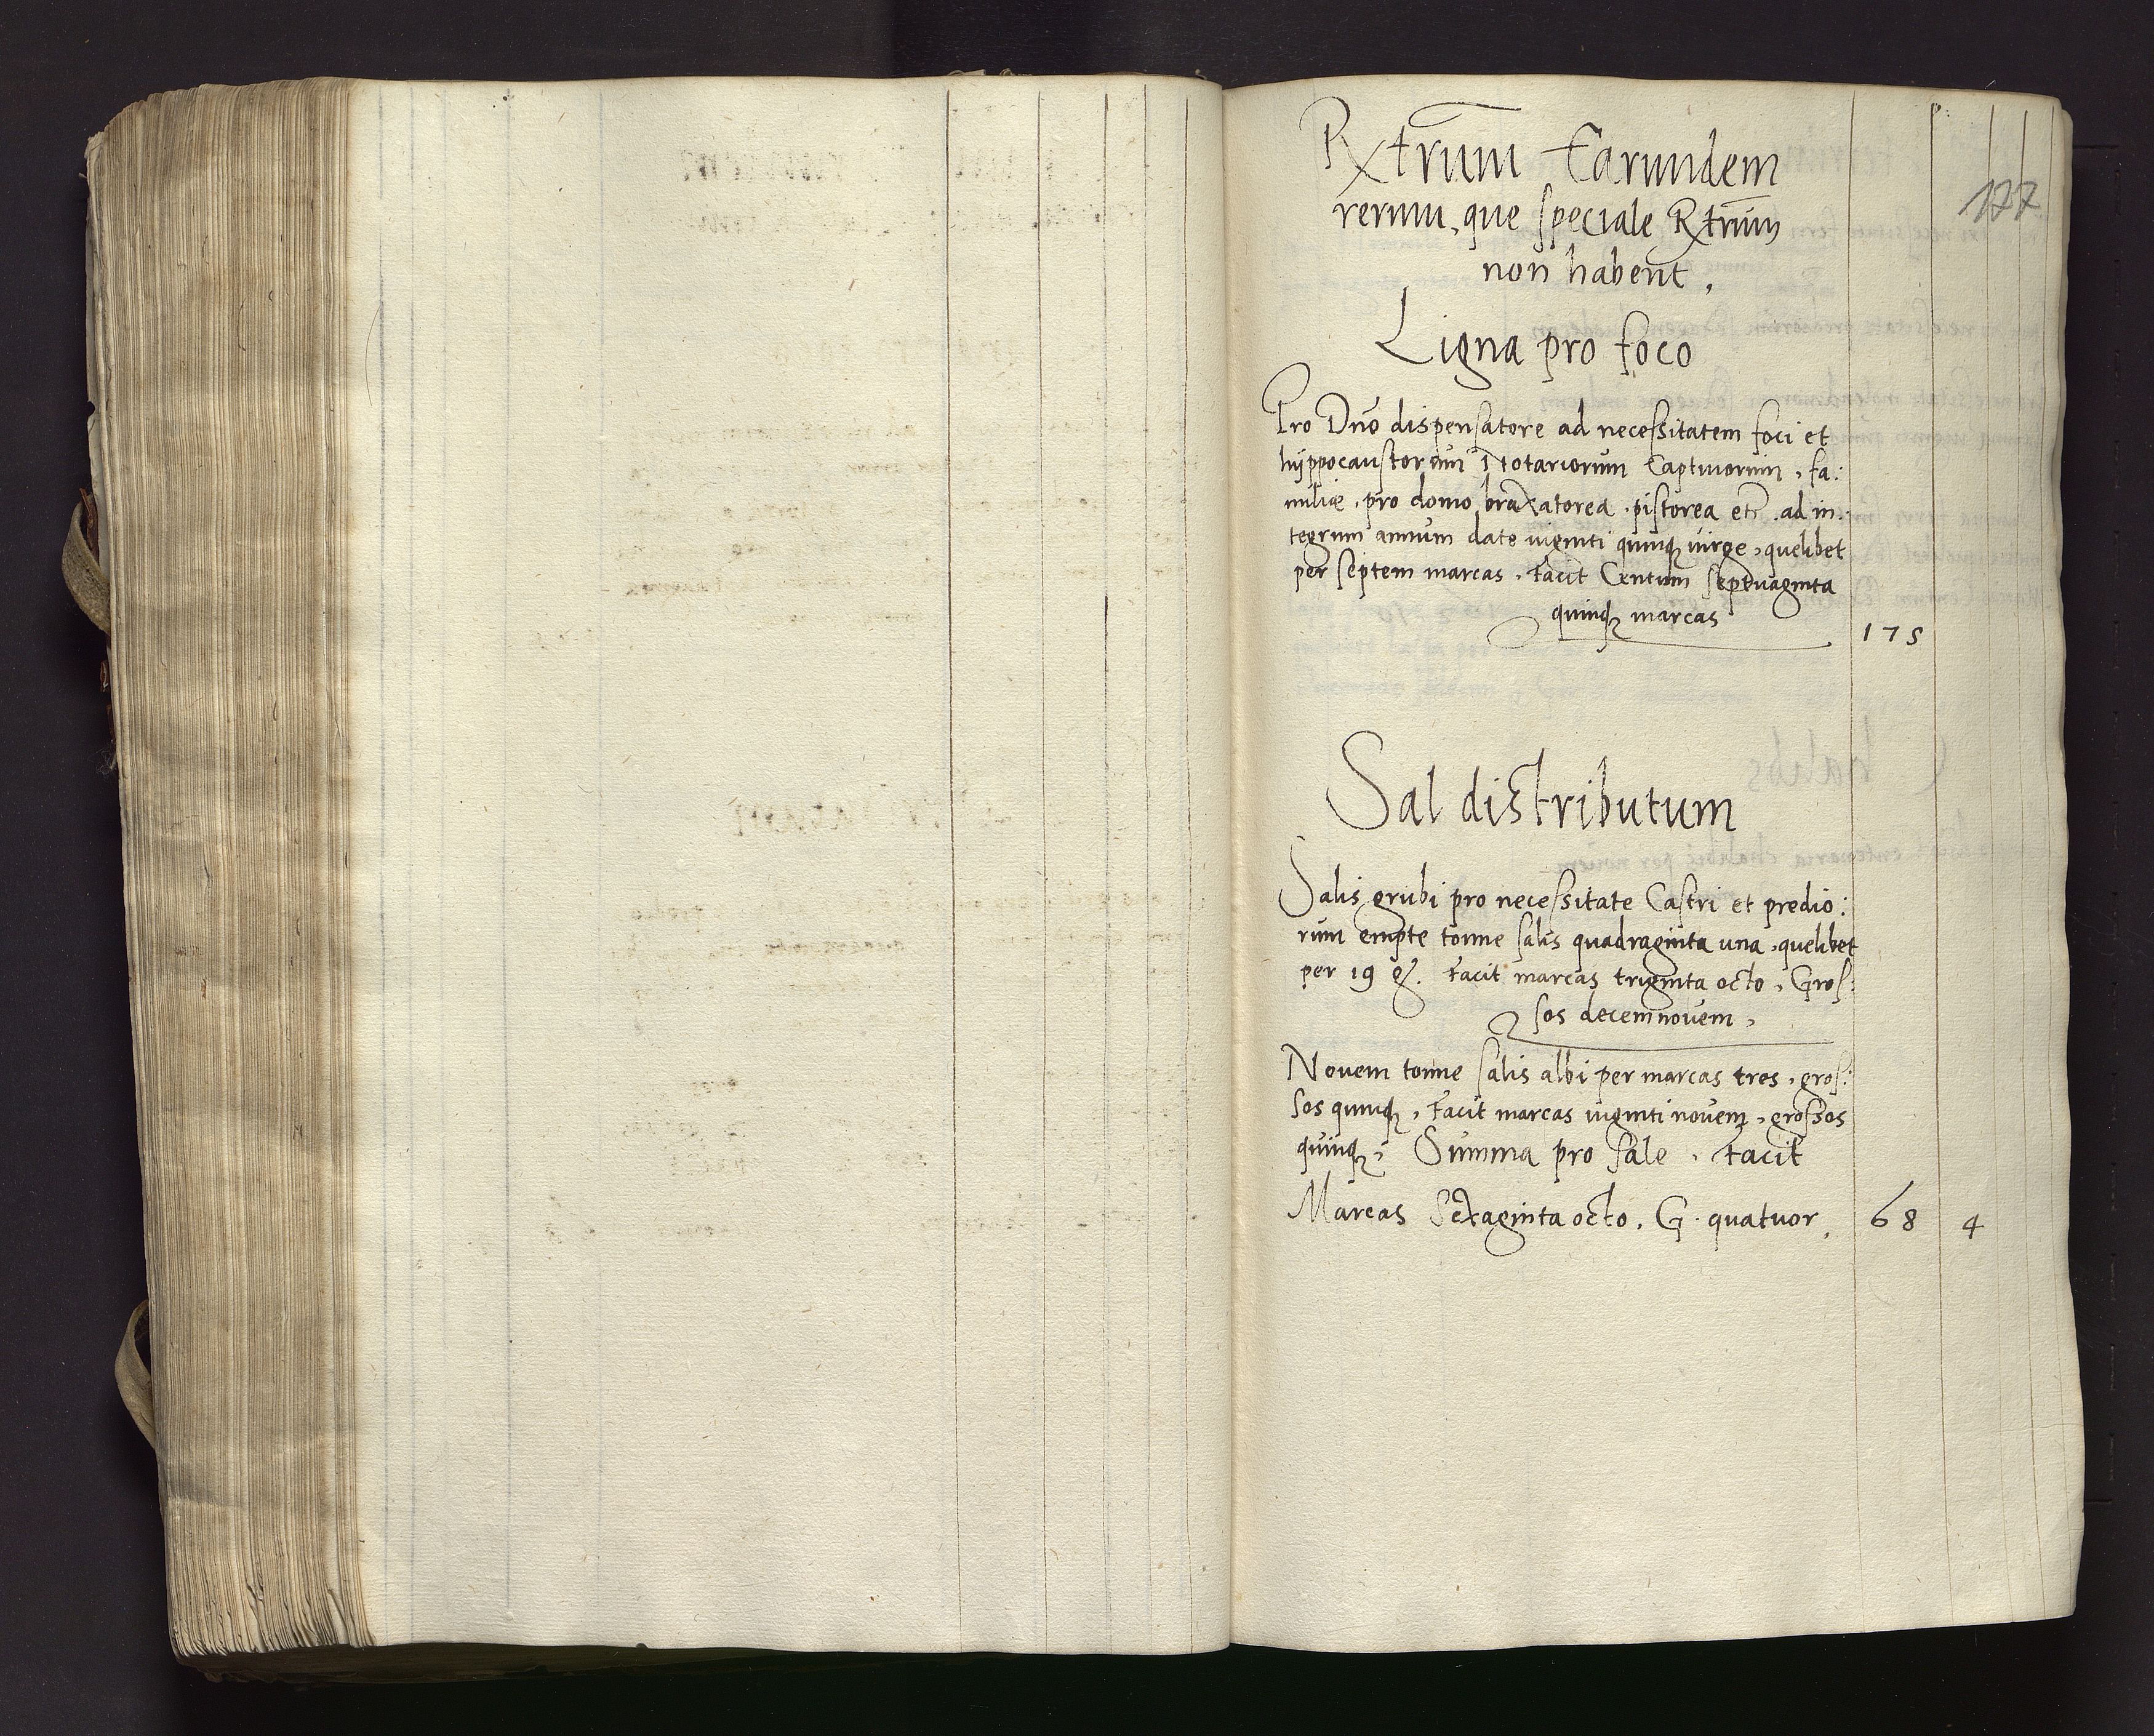 177
Rxtrum Earundem
rerum, que speciale Rxtrum
non habent.
Ligna pro foco
Pro Dno dispensatore ad necessitatem foci et
hyppocaustorum Notariorum Captivorum, fa:
miliæ, pro domo braxatorea, pistorea etc. ad in:
tegrum annum date viginti quinq virge, quelibet
per septem marcas, Facit Centum septuaginta
quinq marcas 175
Sal distributum
Salis grubi pro necessitate Castri et predio:
rum empte tonne salis quadraginta una, quelibet
per 19 g. Facit marcas triginta octo, Gros:
sos decemnovem,
Novem tonne salis albi per marcas tres, gros:
sos quinq, Facit marcas viginti novem, grossos
quinq; Summa pro sale, Facit
Marcas Sexaginta octo, G. quatuor. 68 4